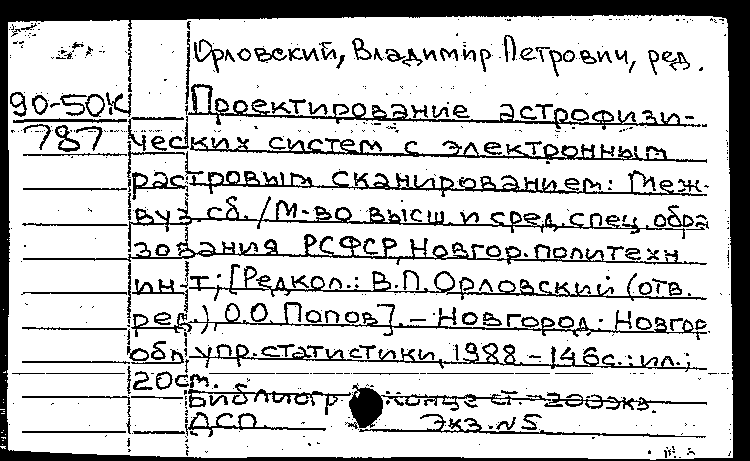 Орловский, Владимир Петрович, ред.
90-50К
787
Проектирование астрофизи-
ческих систем с электронным
растровым сканированием: Меж-
вуз сб. / М-во высш и сред. спец. обра
зования РСФСР, Новгор. политехн
ин-т; [Редкол.: В.П. Орловский (отв.
ред.), О.О. Попов]. - Новгород: Новгор
обл. упр. статистики, 1988. - 146с.: ил.;
20см.
Библиогр конце ст. - 200экз.
ДСП. Экз. №5.